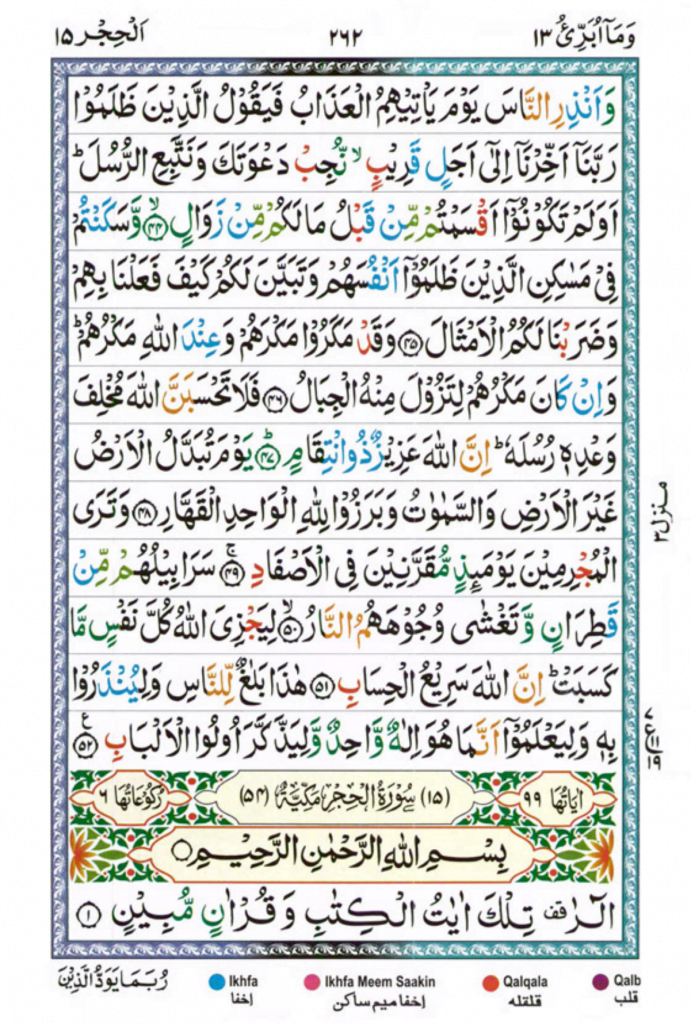 وَمَآ اُبَرِّئُ ١٣ ٢٦٢ اَلْحِجْر ١٥
وَاَنْذِرِ النَّاسَ يَوْمَ يَاْتِيْهِمُ الْعَذَابُ فَيَقُوْلُ الَّذِيْنَ ظَلَمُوْا
رَبَّنَاۤ اَخِّرْنَاۤ اِلٰۤى اَجَلٍ قَرِيْبٍ ۙ نُّجِبْ دَعْوَتَكَ وَنَتَّبِعِ الرُّسُلَ ؕ
اَوَلَمْ تَكُوْنُوْۤا اَقْسَمْتُمْ مِّنْ قَبْلُ مَا لَكُمْ مِّنْ زَوَالٍ ۙ﴿۴۴﴾ وَّسَكَنْتُمْ
فِيْ مَسٰكِنِ الَّذِيْنَ ظَلَمُوْۤا اَنْفُسَهُمْ وَتَبَيَّنَ لَكُمْ كَيْفَ فَعَلْنَا بِهِمْ
وَضَرَبْنَا لَكُمُ الْاَمْثَالَ ﴿۴۵﴾ وَقَدْ مَكَرُوْا مَكْرَهُمْ وَعِنْدَ اللّٰهِ مَكْرُهُمْ ؕ
وَاِنْ كَانَ مَكْرُهُمْ لِتَزُوْلَ مِنْهُ الْجِبَالُ ﴿۴۶﴾ فَلَا تَحْسَبَنَّ اللّٰهَ مُخْلِفَ
وَعْدِهٖ رُسُلَهٗ ؕ اِنَّ اللّٰهَ عَزِيْزٌ ذُو انْتِقَامٍ ؕ﴿۴۷﴾ يَوْمَ تُبَدَّلُ الْاَرْضُ
غَيْرَ الْاَرْضِ وَالسَّمٰوٰتُ وَبَرَزُوْا لِلّٰهِ الْوَاحِدِ الْقَهَّارِ ﴿۴۸﴾ وَتَرَى
الْمُجْرِمِيْنَ يَوْمَىِٕذٍ مُّقَرَّنِيْنَ فِى الْاَصْفَادِ ۚ﴿۴۹﴾ سَرَابِيْلُهُمْ مِّنْ
قَطِرَانٍ وَّتَغْشٰى وُجُوْهَهُمُ النَّارُ ۙ﴿۵۰﴾ لِيَجْزِىَ اللّٰهُ كُلَّ نَفْسٍ مَّا
كَسَبَتْ ؕ اِنَّ اللّٰهَ سَرِيْعُ الْحِسَابِ ﴿۵۱﴾ هٰذَا بَلٰغٌ لِّلنَّاسِ وَلِيُنْذَرُوْا
بِهٖ وَلِيَعْلَمُوْۤا اَنَّمَا هُوَ اِلٰهٌ وَّاحِدٌ وَّلِيَذَّكَّرَ اُولُوا الْاَلْبَابِ ﴿۵۲﴾ ع
اٰيَاتُهَا ٩٩ (١٥) سُوْرَةُ الْحِجْرِ مَكِّيَّةٌ (٥٤) رُكُوْعَاتُهَا ٦
بِسْمِ اللّٰهِ الرَّحْمٰنِ الرَّحِيْمِ
الٓرٰ ࣞقف تِلْكَ اٰيٰتُ الْكِتٰبِ وَقُرْاٰنٍ مُّبِيْنٍ ﴿۱﴾
منزل ٣
رُبَمَا يَوَدُّ الَّذِيْنَ
Ikhfa
إخفا
Ikhfa Meem Saakin
إخفا ميم ساكن
Qalqala
قلقله
Qalb
قلب